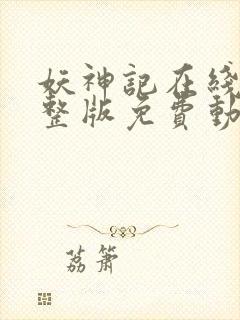 妖神記在綫
整版免費動
荔簫